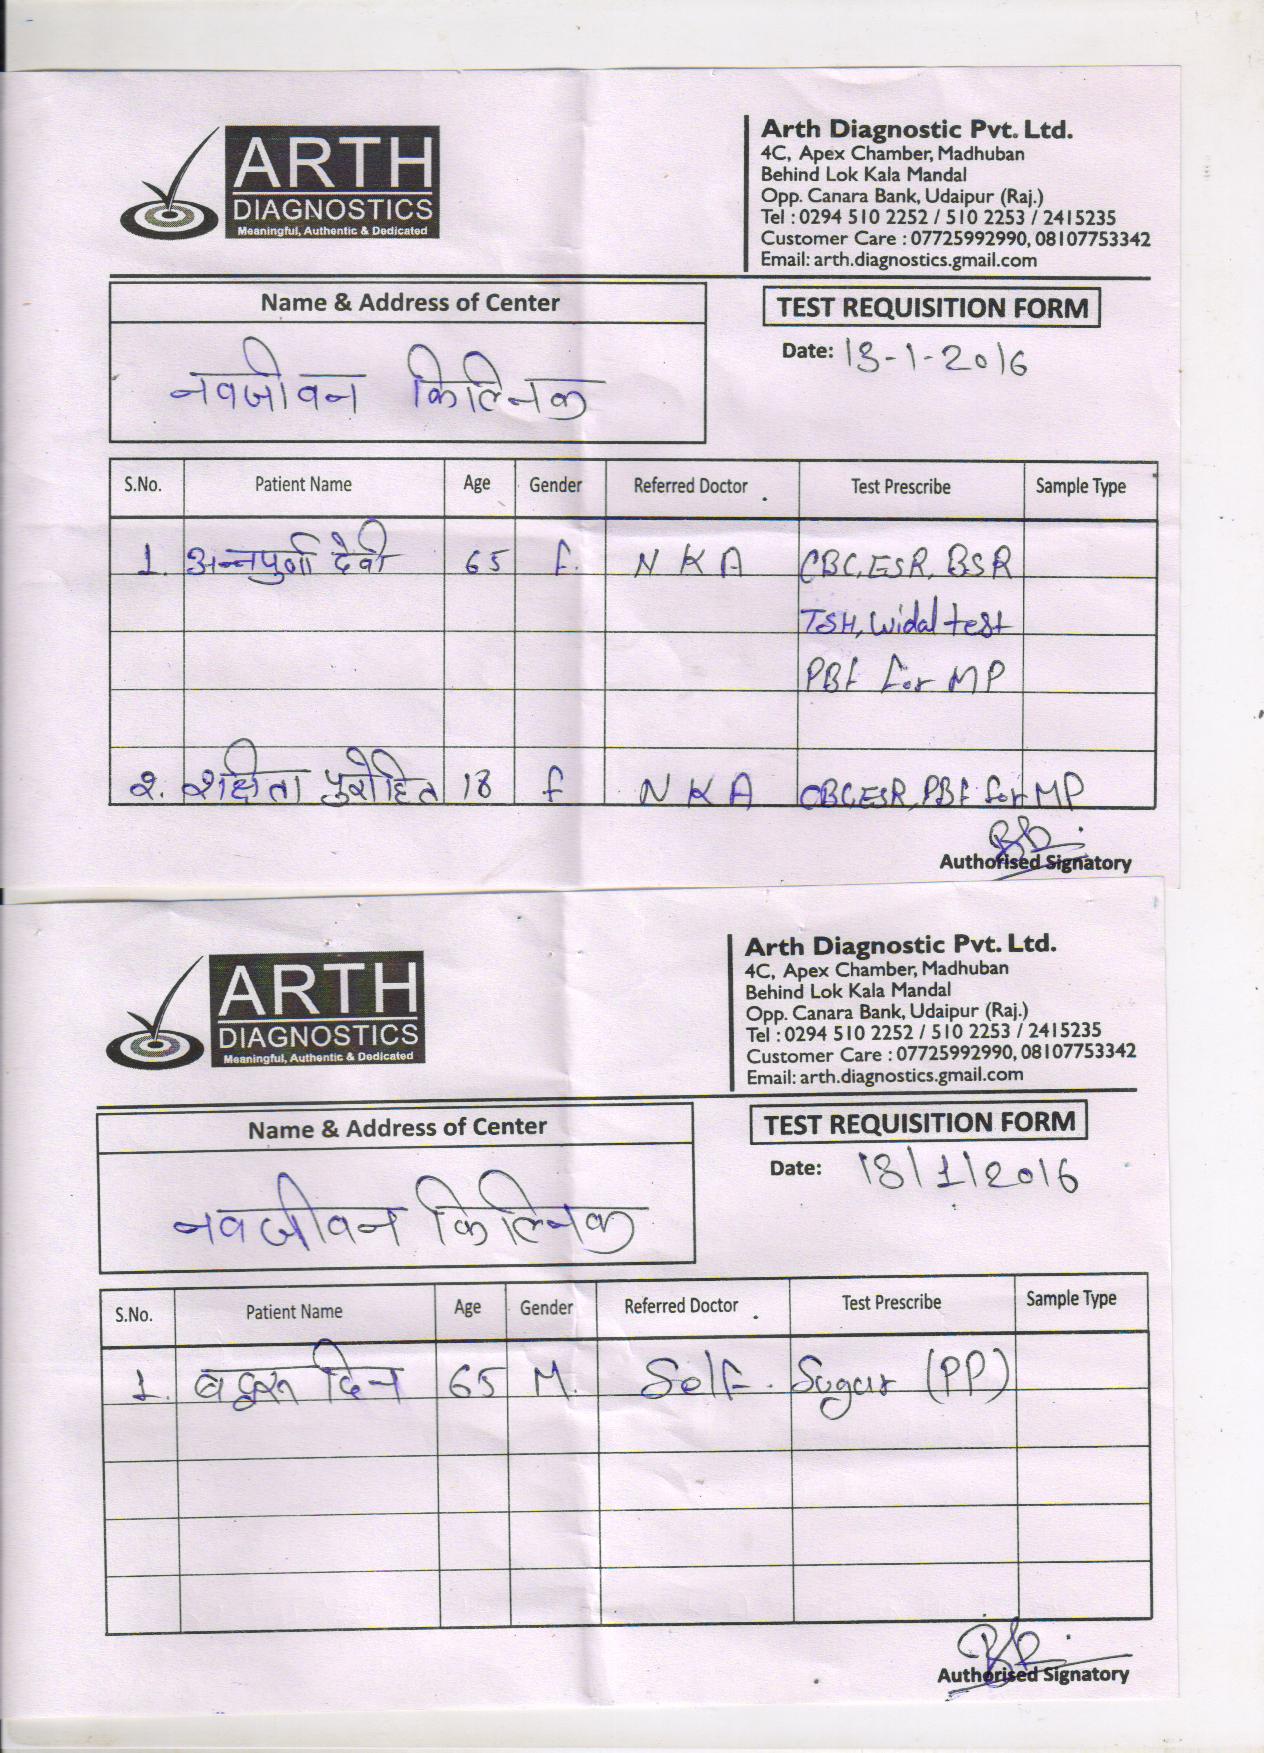 ARTH
DIAGNOSTICS
Meaningful, Authentic & Dedicated
Arth Diagnostic Pvt. Ltd.
4C, Apex Chamber, Madhuban
Behind Lok Kala Mandal
Opp. Canara Bank, Udaipur (Raj.)
Tel : 0294 510 2252 / 510 2253 / 2415235
Customer Care : 07725992990, 08107753342
Email: arth.diagnostics.gmail.com
Name & Address of Center
नवजीवन किलिनक
TEST REQUISITION FORM
Date: 18-1-2016
S.No. Patient Name Age Gender Referred Doctor Test Prescribe Sample Type
1. अन्नपुर्णा देवी 65 F. N K A CBC, ESR, BSR
TSH, Widal test
PBF for MP
२. पुरोहित 18 F N K A CBC, ESR, PBF for MP
Authorised Signatory
ARTH
DIAGNOSTICS
Meaningful, Authentic & Dedicated
Arth Diagnostic Pvt. Ltd.
4C, Apex Chamber, Madhuban
Behind Lok Kala Mandal
Opp. Canara Bank, Udaipur (Raj.)
Tel : 0294 510 2252 / 510 2253 / 2415235
Customer Care : 07725992990, 08107753342
Email: arth.diagnostics.gmail.com
Name & Address of Center
नवजीवन किलिनक
TEST REQUISITION FORM
Date: 18/1/2016
S.No. Patient Name Age Gender Referred Doctor Test Prescribe Sample Type
1. दिन 65 M. Self. Sugar (PP)
Authorised Signatory